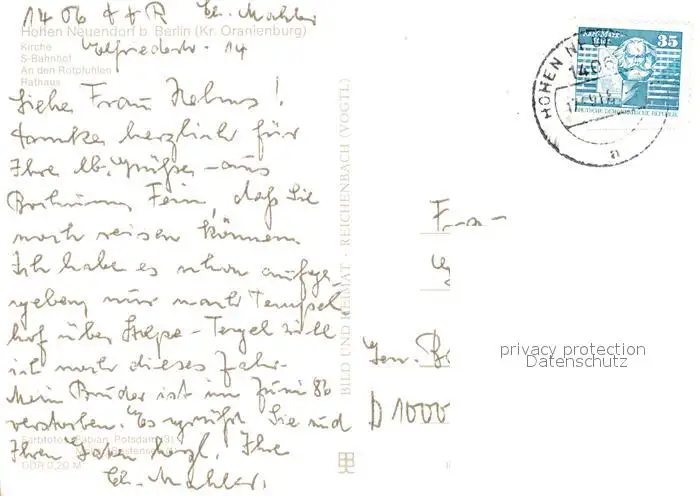 1406 HHR Ch. Mahler
Hohen Neuendorf b. Berlin (Kr. Oranienburg)
Elfriedestr. 14
Kirche
S-Bahnhof
An den Rotpfuhlen
Rathaus
Liebe Frau Helms!
danke herzlich für
Ihre lb. Grüße aus
Fein, daß Sie
noch reisen können.
Ich habe es schon aufge-
geben, nur nach Tempel
hof über Stolpe - Tegel will
ich noch dieses Jahr.
Mein Bruder ist im Juni 86
verstorben. Es grüßt Sie und
Ihren Gatten herzl. Ihre
Ch. Mahler.
Farbfoto: Fabian, Potsdam (3)
DDR 0,20 M
BILD UND HEIMAT · REICHENBACH (VOGTL)
Karl-Marx-
35
DEUTSCHE DEMOKRATISCHE REPUBLIK
HOHEN NEU
1406
a
Frau
D 1000
privacy protection
Datenschutz